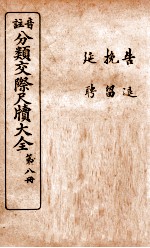 音註
分類交際尺牘大全
第八冊
告
挽留
延聘